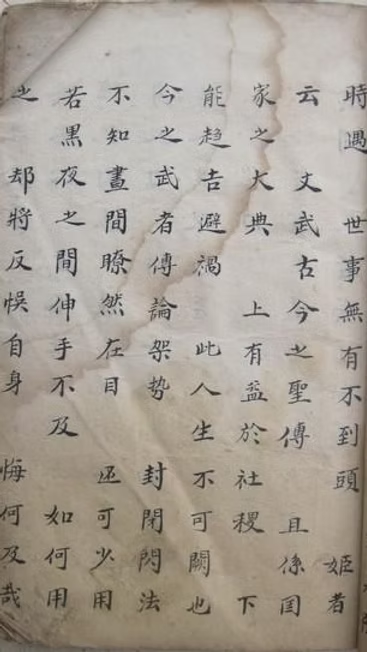 時遇 世事無有不到頭 姬者
云 丈武古今之聖傳 且係国
家之大典 上有益於社稷 下
能趋吉避禍 此人生不可闕也
今之武者傳論架势 封閉閃法
不知晝間瞭然在目 还可少用
若黑夜之間伸手不及 如何用
之 却將反悞自身 悔何及哉